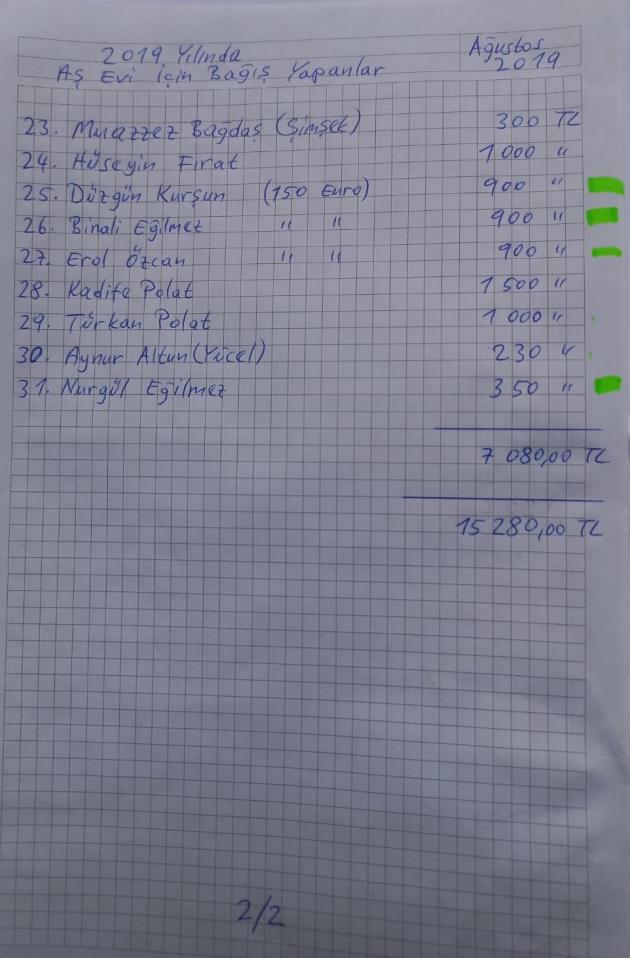 2019 Yılında
Ağustos
2019
Aş Evi için Bağış Yapanlar
23. Muazzez Bağdaş (Şimşek) 300 TL
24. Hüseyin Fırat 1 000 "
25. Düzgün Kurşun (150 Euro) 900 "
26. Binali Eğilmez " " 900 "
27. Erol Özcan " " 900 "
28. Kadife Polat 1 500 "
29. Türkan Polat 1 000 "
30. Aynur Altun (Yücel) 230 "
31. Nurgül Eğilmez 350 "
7 080,00 TL
15 280,00 TL
2/2